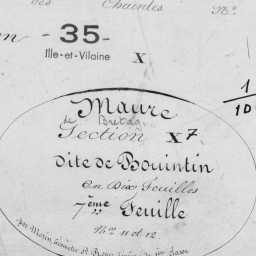 des Chaintes No.
- 35 -
Ille-et-Vilaine X
1
10
Maure
de Bretag
Section X7
dite de Bouintin
en Dix feuilles
7ème feuille
Nos. 11 et 12
par Morin, Géomètre